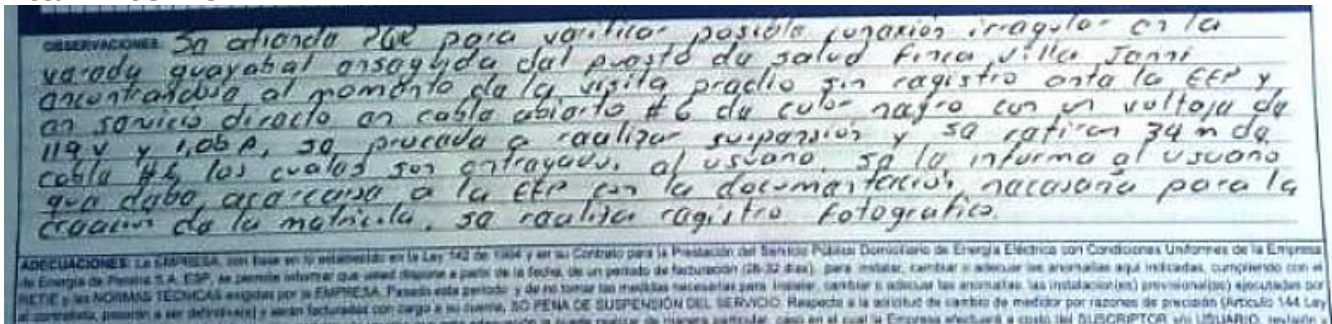 OBSERVACIONES: Se atiende PQR para verificar posible conexión irregular en la
vereda guayabal enseguida del puesto de salud Finca Villa Jenni
encontrandose al momento de la visita predio sin registro ante la EEP y
en servicio directo en cable abierto #6 de color negro con un voltaje de
119 v y 1,06 A, se procede a realizar suspensión y se retiran 34 m de
cable #6 los cuales son entregados al usuario. se le informa al usuario
que debe acercarse a la EEP con la documentación necesaria para la
creación de la matricula. se realiza registro fotografico.
ADECUACIONES: La EMPRESA, con base en lo establecido en la Ley 142 de 1994 y en su Contrato para la Prestación del Servicio Público Domiciliario de Energía Eléctrica con Condiciones Uniformes de la Empresa
de Energía de Pereira S.A. ESP, se permite informar que usted dispone a partir de la fecha, de un periodo de facturación (28-32 días), para instalar, cambiar o adecuar las anomalías aquí indicadas, cumpliendo con el
RETIE y las NORMAS TÉCNICAS exigidas por la EMPRESA. Pasado este periodo y de no tomar las medidas necesarias para instalar, cambiar o adecuar las anomalías, las instalación(es) provisional(es) ejecutadas por
el contratista, pasarán a ser definitiva(s) y serán facturadas con cargo a su cuenta, SO PENA DE SUSPENSIÓN DEL SERVICIO. Respecto a la solicitud de cambio de medidor por razones de precisión (Artículo 144 Ley
de manera particular, caso en el cual la Empresa efectuará a costo del SUSCRIPTOR y/o USUARIO, revisión